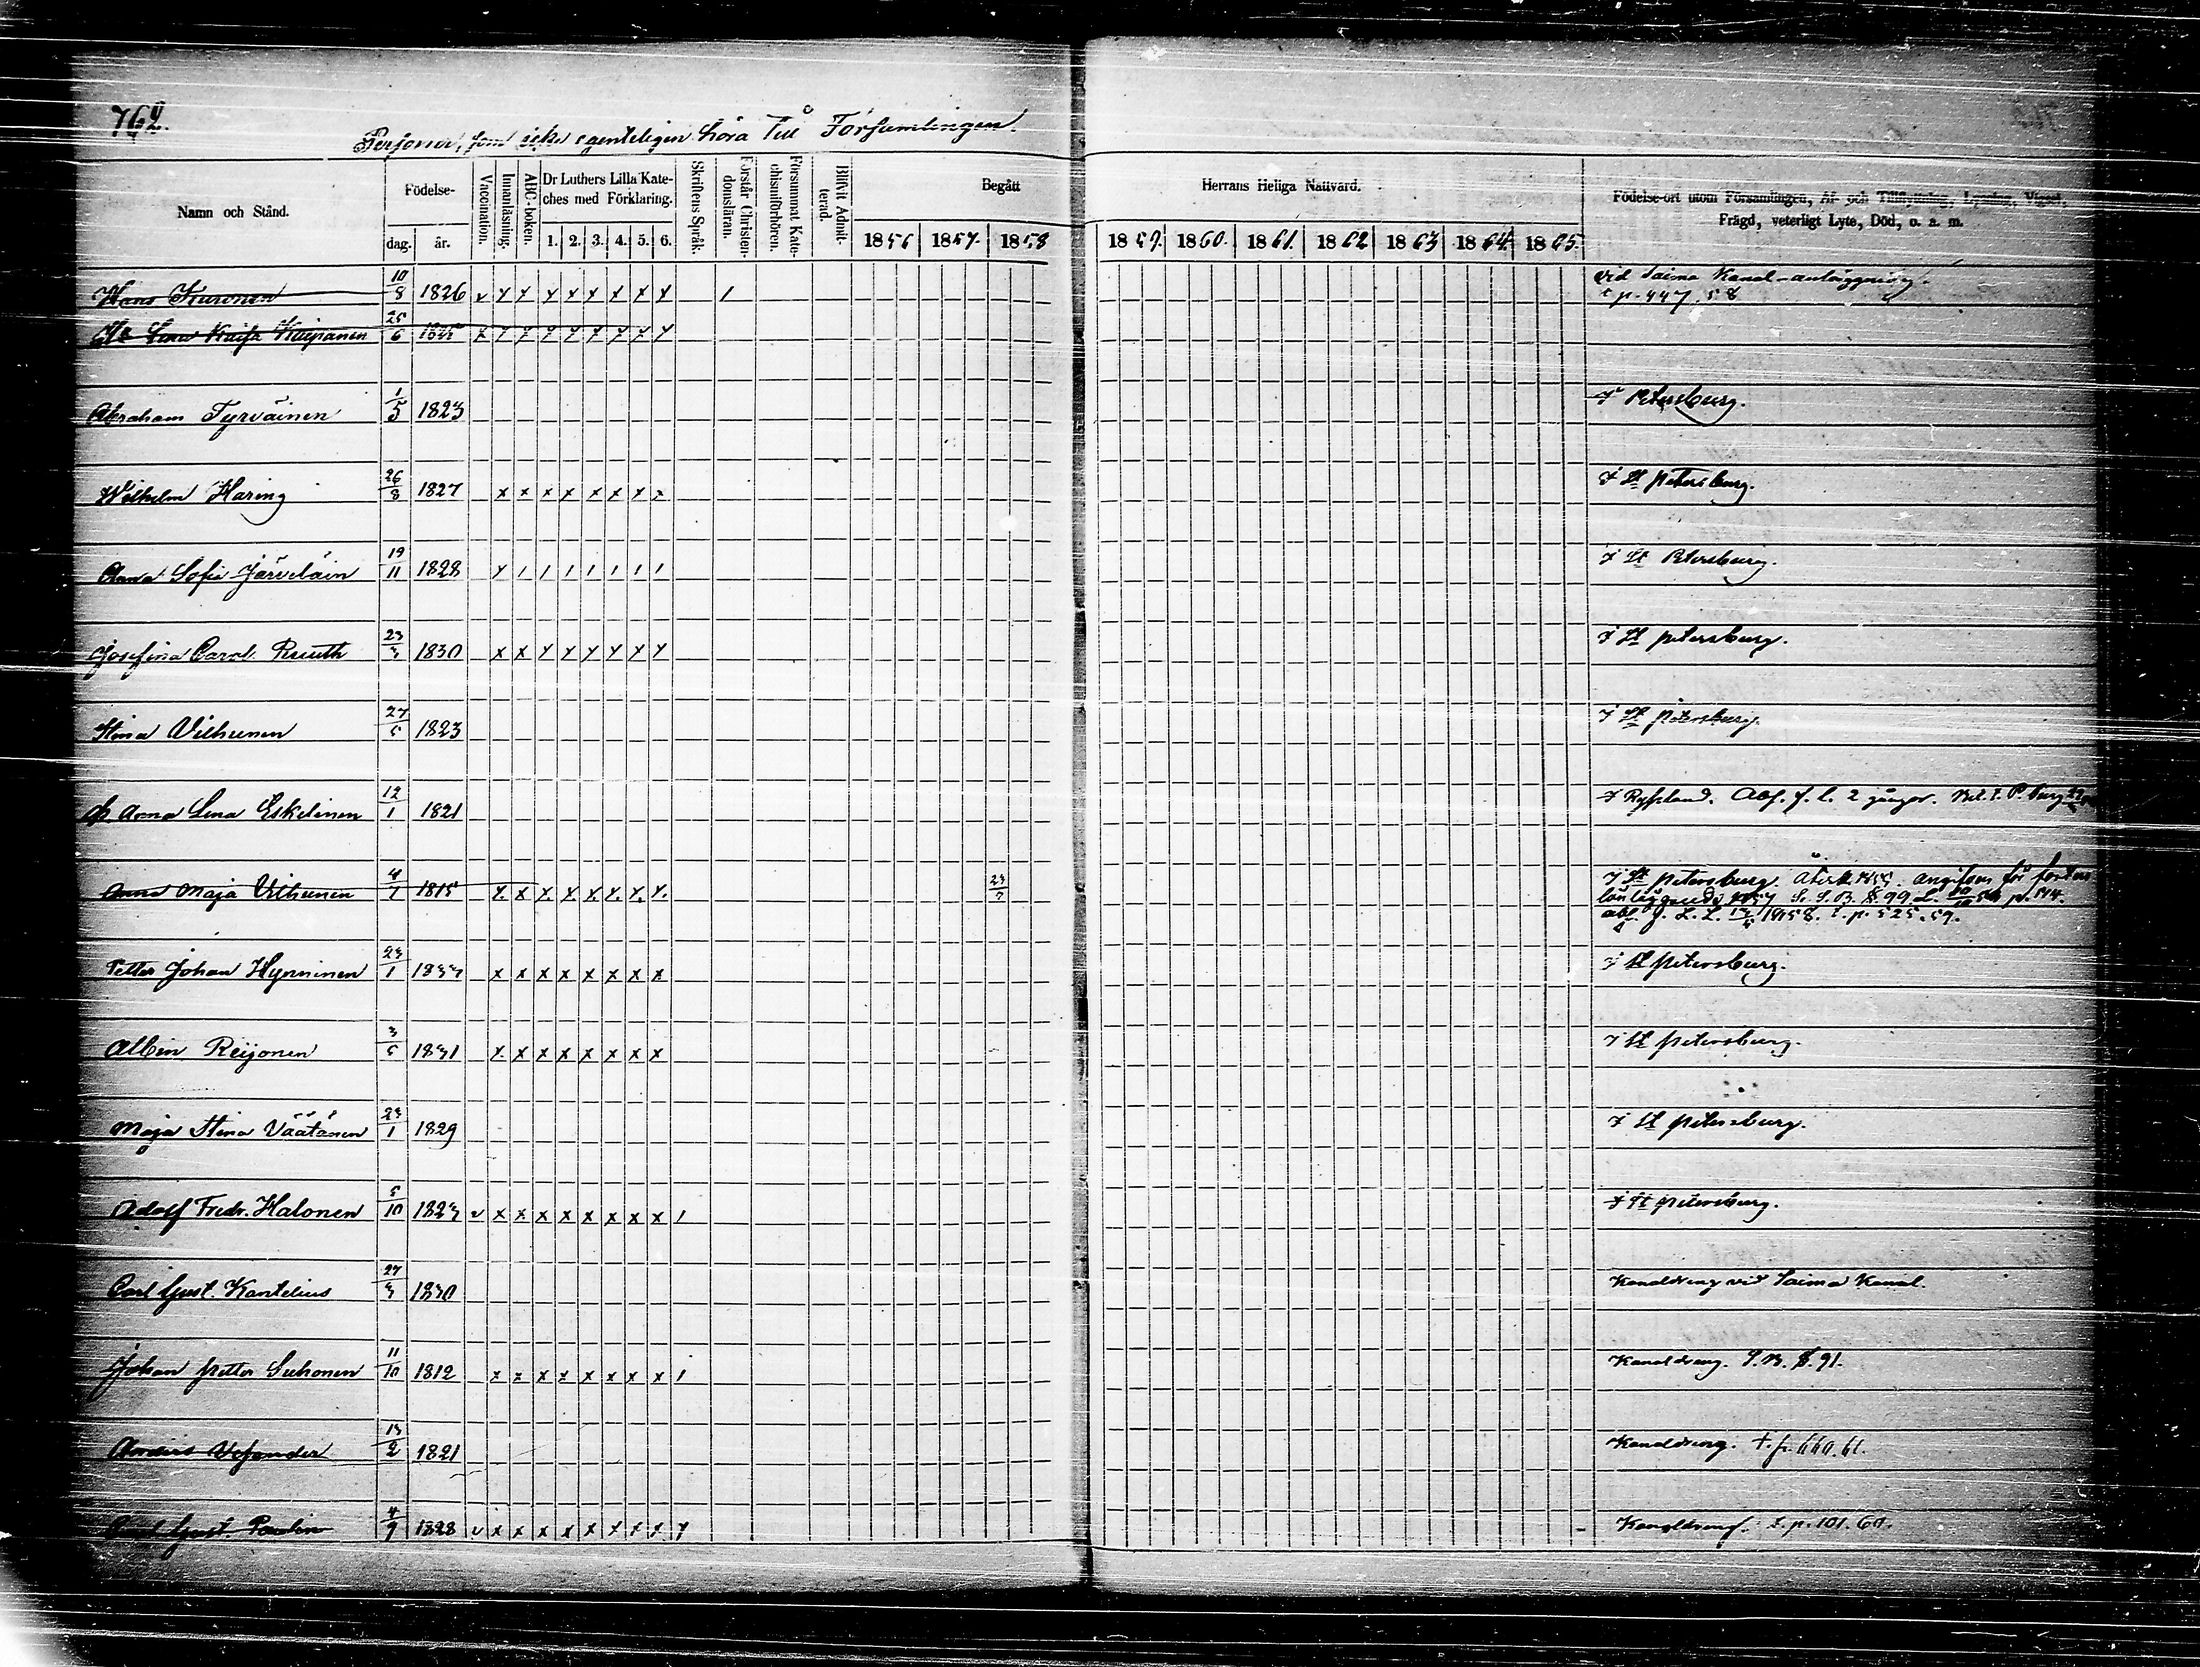 762.
Personer, som icke egenteligen höra Till Församlingen.
Namn och Stånd.
Födelse-
dag. år.
Vaccination.
Innanläsning.
ABC-boken.
Dr Luthers Lilla Kate-
ches med Förklaring.
1. 2. 3. 4. 5. 6.
Skriftens Språk.
Förstår Christen-
domsläran.
Försummat Kate-
chismiförhören.
Blifvit Admit-
terad.
Begått
1856 1857. 1858
Herrans Heliga Nattvard.
1859. 1860. 1861. 1862 1863 1864. 1865.
Födelse-ort utom Församlingen, Af- och Tillflyttning, Lysning, Vigsel,
Frägd, veterligt Lyte, Död, o. a. m.
Hans Kuronen 10/8 1826 vid Saima Kanal-anläggning.
t p. 447. 58
Lena Kaisa 25/6
Abraham Tyrväinen 1/5 1823 I Petersburg.
Wilhelm Haring 26/8 1827 I St Petersburg.
Anna Sofia Järveläin 19/11 1828 I St Petersburg.
Josefina Carol. 23/3 1830 I St petersburg.
Stina Vilhunen 27/5 1823 I St petersburg.
Anna Lena Eskelinen 12/1 1821 I Ryssland. Abs. f. l. 2 gånger.
Anna Maja Vilhunen 4/1 1815 23/7 I St petersburg.
1857 99
1858. t. p. 525. 59.
Petter Johan Hynninen 23/1 1833 I St petersburg.
Albin Reijonen 3/5 1831 I St petersburg.
Maja Stina Väätänen 23/1 1829 I St petersburg.
Adolf Fredr. Halonen 5/10 1823 I St petersburg.
Carl Gust. Kantelius 27/3 1830 Kanaldreng vid Saima Kanal.
Johan petter Suhonen 11/10 1812 Kanaldreng. S. B. 8. 91.
Anders Vesander 13/2 1821 Kanaldreng. t. p. 660. 61.
Carl Gust. Paulin 4/9 1828 t. p. 101. 60.